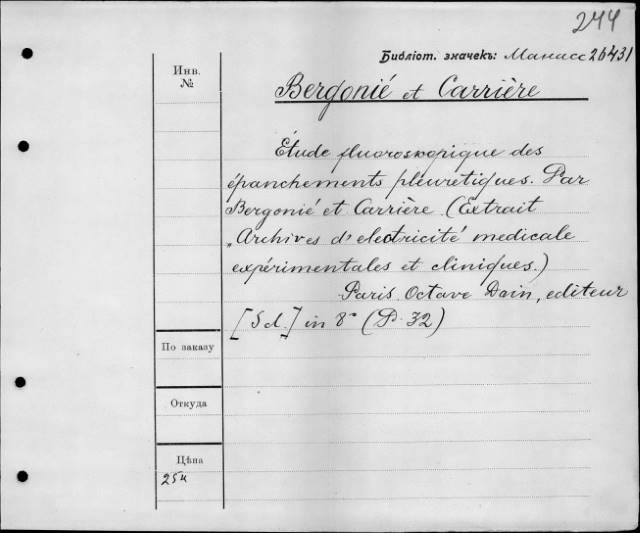 244
Библіот. значекъ: Манасс 26431
Инв.
№
Bergonié et Carrière
Étude fluoroskopique des
épanchements pleurétiques. Par
Bergonié et Carrière. (Extrait
„Archives d'electricité medicale
expérimentales et cliniques.)
Paris Octave Doin, editeur
[S d.] in 8° (P. 32)
По заказу
Откуда
Цѣна
25к